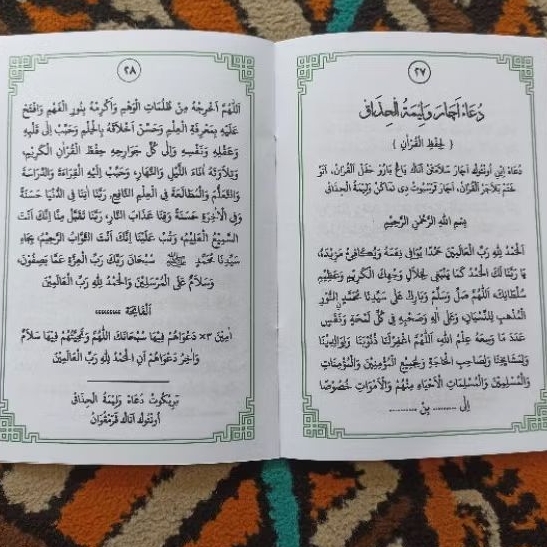 ٢٧
دُعَاءْ اَچَارَ وَلِيْمَةُ الْحِذَاقِ
﴿ لِحِفْظِ الْقُرْآنِ ﴾
دُعَاءْ اِيْنِ اُونْتُوْكْ اَچَارَ سَلَامَتَنْ اَنَاكْ يَاڠْ بَارُوْ حَفَلْ الْقُرْآنْ، اَتَوْ
خَتَمْ بَلَاجَرْ الْقُرْآنْ، اَچَارَ تَرْسَبُوْتْ دِيْ نَمَاكَنْ وَلِيْمَةُ الْحِذَاقِ
بِسْمِ اللهِ الرَّحْمٰنِ الرَّحِيْمِ
اَلْحَمْدُ لِلّٰهِ رَبِّ الْعَالَمِيْنَ حَمْدًا يُوَافِي نِعَمَهُ وَيُكَافِئُ مَزِيْدَهُ،
يَا رَبَّنَا لَكَ الْحَمْدُ كَمَا يَنْبَغِي لِجَلَالِ وَجْهِكَ الْكَرِيْمِ وَعَظِيْمِ
سُلْطَانِكَ، اَللّٰهُمَّ صَلِّ وَسَلِّمْ وَبَارِكْ عَلَى سَيِّدِنَا مُحَمَّدٍ النُّوْرِ
الْمُذْهِبِ لِلنِّسْيَانِ، وَعَلَى آلِهِ وَصَحْبِهِ فِي كُلِّ لَمْحَةٍ وَنَفَسٍ
عَدَدَ مَا وَسِعَهُ عِلْمُ اللهِ، اَللّٰهُمَّ اغْفِرْ لَنَا ذُنُوْبَنَا وَلِوَالِدِيْنَا
وَلِمَشَايِخِنَا وَلِصَاحِبِ الْحَاجَةِ وَلِجَمِيْعِ الْمُؤْمِنِيْنَ وَالْمُؤْمِنَاتِ
وَالْمُسْلِمِيْنَ وَالْمُسْلِمَاتِ الْأَحْيَاءِ مِنْهُمْ وَالْأَمْوَاتِ خُصُوْصًا
اِلَى ........... بِنْ ...........
٢٨
اَللّٰهُمَّ اَخْرِجْهُ مِنْ ظُلُمَاتِ الْوَهْمِ وَاَكْرِمْهُ بِنُوْرِ الْفَهْمِ وَافْتَحْ
عَلَيْهِ بِمَعْرِفَةِ الْعِلْمِ وَحَسِّنْ اَخْلَاقَهُ بِالْحِلْمِ وَحَبِّبْ اِلَى قَلْبِهِ
وَعَقْلِهِ وَنَفْسِهِ وَاِلَى كُلِّ جَوَارِحِهِ حِفْظَ الْقُرْاٰنِ الْكَرِيْمِ،
وَتِلَاوَتَهُ اٰنَاءَ اللَّيْلِ وَالنَّهَارِ، وَحَبِّبْ اِلَيْهِ الْقِرَاءَةَ وَالدِّرَاسَةَ
وَالتَّعَلُّمَ وَالْمُطَالَعَةَ فِي الْعِلْمِ النَّافِعِ، رَبَّنَا اٰتِنَا فِي الدُّنْيَا حَسَنَةً
وَفِي الْاٰخِرَةِ حَسَنَةً وَقِنَا عَذَابَ النَّارِ، رَبَّنَا تَقَبَّلْ مِنَّا اِنَّكَ اَنْتَ
السَّمِيْعُ الْعَلِيْمُ، وَتُبْ عَلَيْنَا اِنَّكَ اَنْتَ التَّوَّابُ الرَّحِيْمُ، بِجَاهِ
سَيِّدِنَا مُحَمَّدٍ ﷺ سُبْحَانَ رَبِّكَ رَبِّ الْعِزَّةِ عَمَّا يَصِفُوْنَ،
وَسَلَامٌ عَلَى الْمُرْسَلِيْنَ وَالْحَمْدُ لِلّٰهِ رَبِّ الْعَالَمِيْنَ
اَلْفَاتِحَةْ .........
اٰمِيْنَ ٣× دَعْوَاهُمْ فِيْهَا سُبْحَانَكَ اللّٰهُمَّ وَتَحِيَّتُهُمْ فِيْهَا سَلَامٌ
وَاٰخِرُ دَعْوَاهُمْ اَنِ الْحَمْدُ لِلّٰهِ رَبِّ الْعَالَمِيْنَ
بَرِيْكُوتْ دُعَاءْ وَلِيْمَةُ الْحِذَاقِ
اُونْتُوكْ اَنَاكْ فَرَمْفُوَانْ